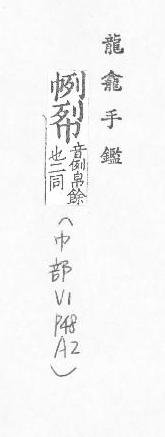 龍龕手鑑
音例帛餘
也二同
(巾部 V1 P48 A2)